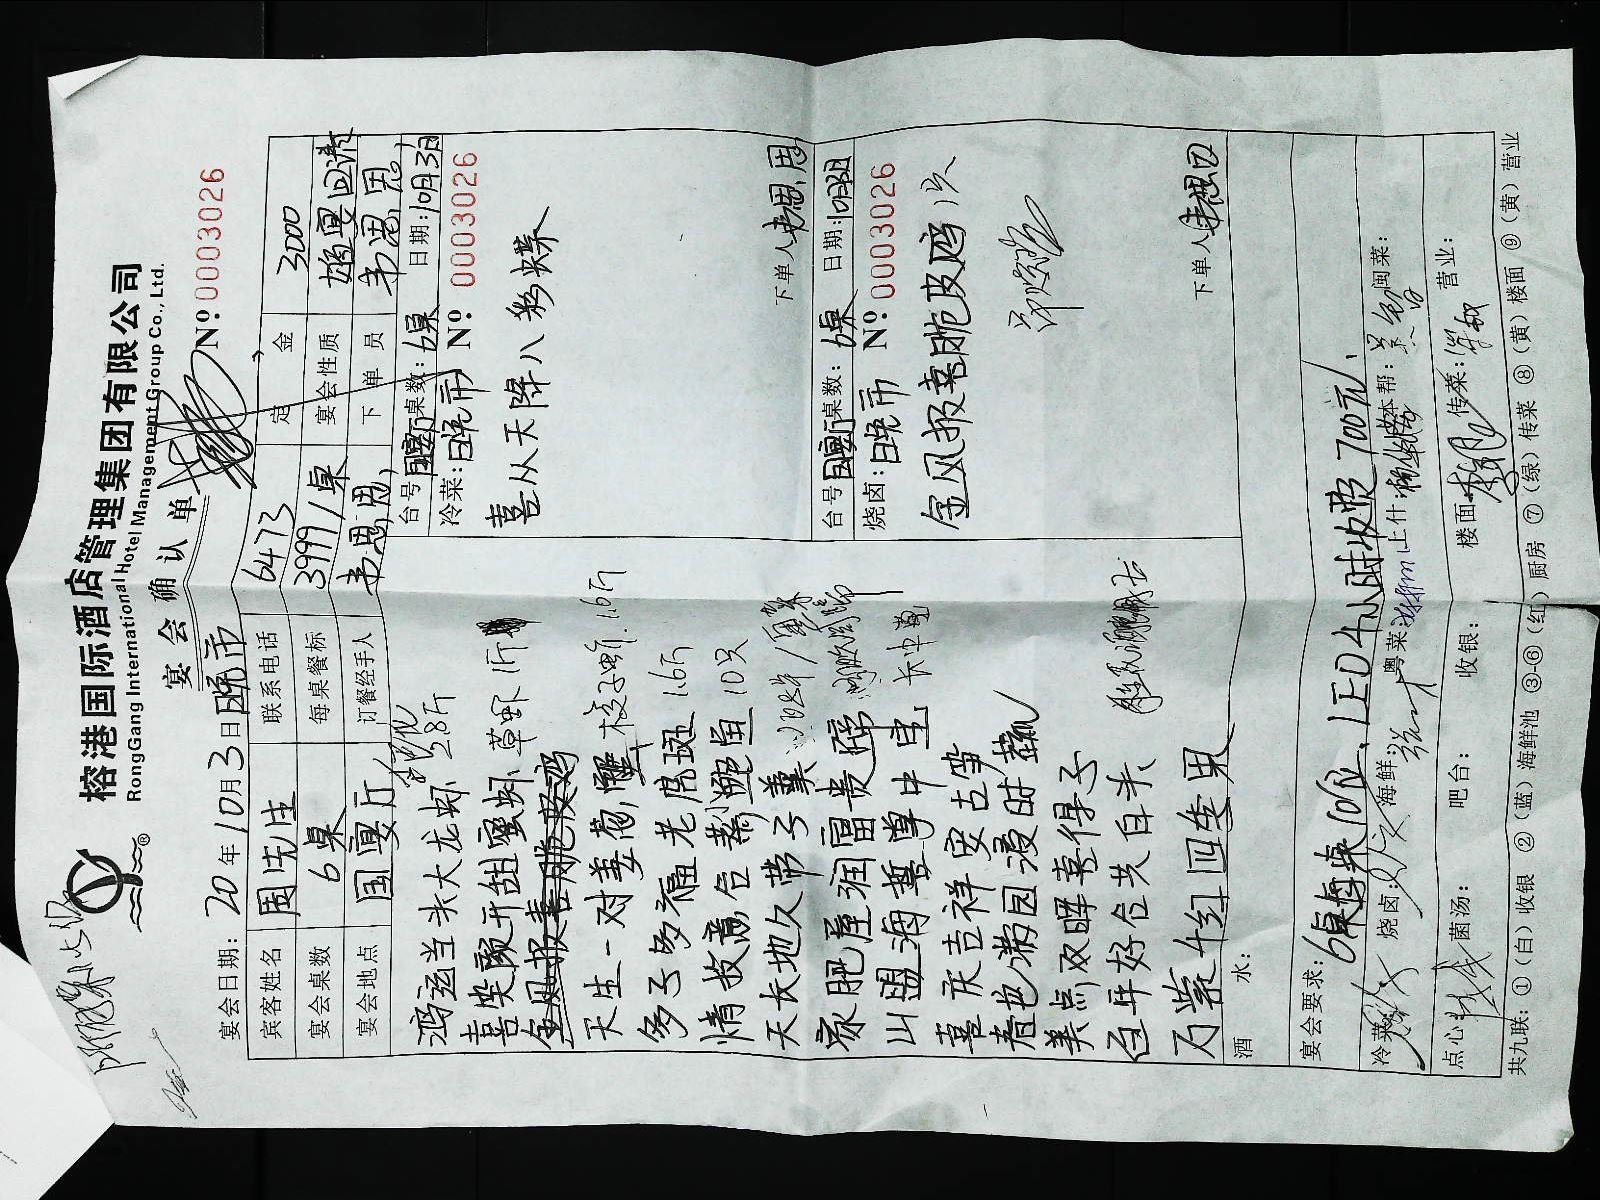 榕港国际酒店管理集团有限公司
RongGang International Hotel Management Group Co., Ltd.
宴会确认单
Nº:0003026
宴会日期: 20 年 10 月 3 日 晚市
宾客姓名 周先生 联系电话 6473 定金 3000
宴会桌数 6桌 每桌餐标 3999/桌 宴会性质 婚宴回请
宴会地点 国宴厅 订餐经手人 韦思思 下单员 韦思思
鸿运当头大龙虾 2.8斤
喜笑颜开甜蜜虾 草虾 1斤
金凤报喜脆皮鸡
天生一对姜葱蟹 1.6斤
多子多福老虎斑 1.6斤
情投意合鲍 10只
天长地久带子羹
家肥屋润富贵蹄
山盟海誓尊中宝
喜庆吉祥安吉笋
春色满园漫时蔬
美点双晖喜得子
百年好合共白头
万紫千红四季果
台号 国宴厅 桌数: 6桌 日期: 10月3日
冷菜: 晚市 Nº 0003026
喜从天降八彩蝶
下单人 韦思思
台号 国宴厅 桌数: 6桌 日期: 10月3日
烧卤: 晚市 Nº 0003026
金凤报喜脆皮鸡 1只
下单人 韦思思
酒水:
宴会要求: 6桌每桌10位、LED4小时收费700元.
冷菜: 烧卤: 海鲜: 粤菜: 上什: 本帮: 闽菜:
点心: 菌汤: 吧台: 收银: 楼面: 传菜: 营业:
共九联: ①(白)收银 ②(蓝)海鲜池 ③-⑥(红)厨房 ⑦(绿)传菜 ⑧(黄)楼面 ⑨(黄)营业